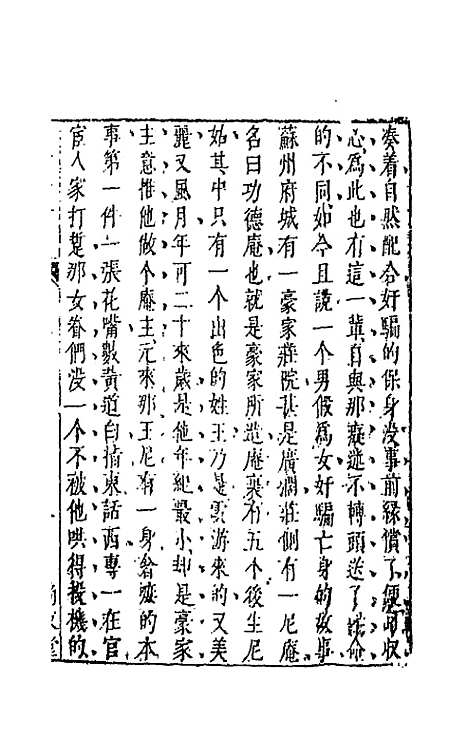 奏着自然配合奸騙的保身没事前緣償了便可收
心爲此也有這一輩自與那癡迷不轉頭送了性命
的不同如今且說一个男假爲女奸騙亡身的故事
蘇州府城有一豪家莊院甚是廣濶莊側有一尼庵
名曰功德庵也就是豪家所造庵裏有五个後生尼
姑其中只有一个出色的姓王乃是雲游來的又美
麗又風月年可二十來歲是他年紀最小却是豪家
主意推他做个庵主元來那王尼有一身奢遮的本
事第一件一張花嘴數黃道白指東話西專一在官
宦人家打踅那女眷們没一个不被他哄得投機的